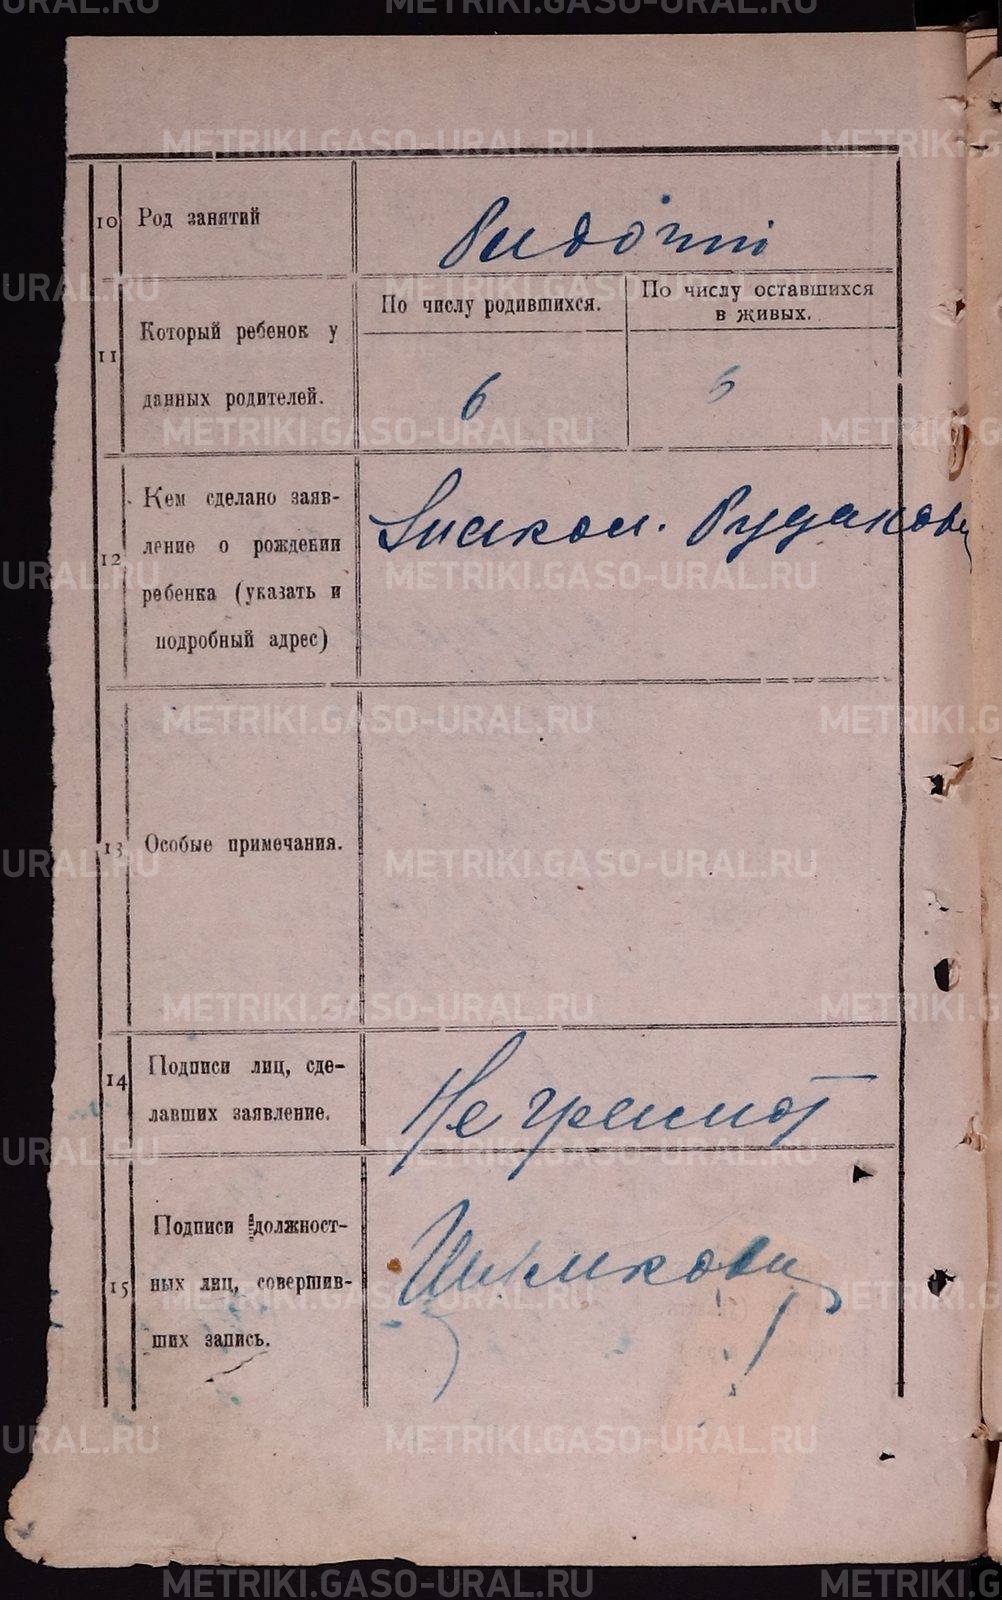 METRIKI.GASO-URAL.RU
10 Род занятий
11 Который ребенок у
данных родителей.
По числу родившихся.
По числу оставшихся
в живых.
6
12 Кем сделано заяв-
ление о рождении
ребенка (указать и
подробный адрес)
Рудакова
13 Особые примечания.
14 Подписи лиц, сде-
лавших заявление.
Не грамот
15 Подписи должност-
ных лиц, совершив-
ших запись.